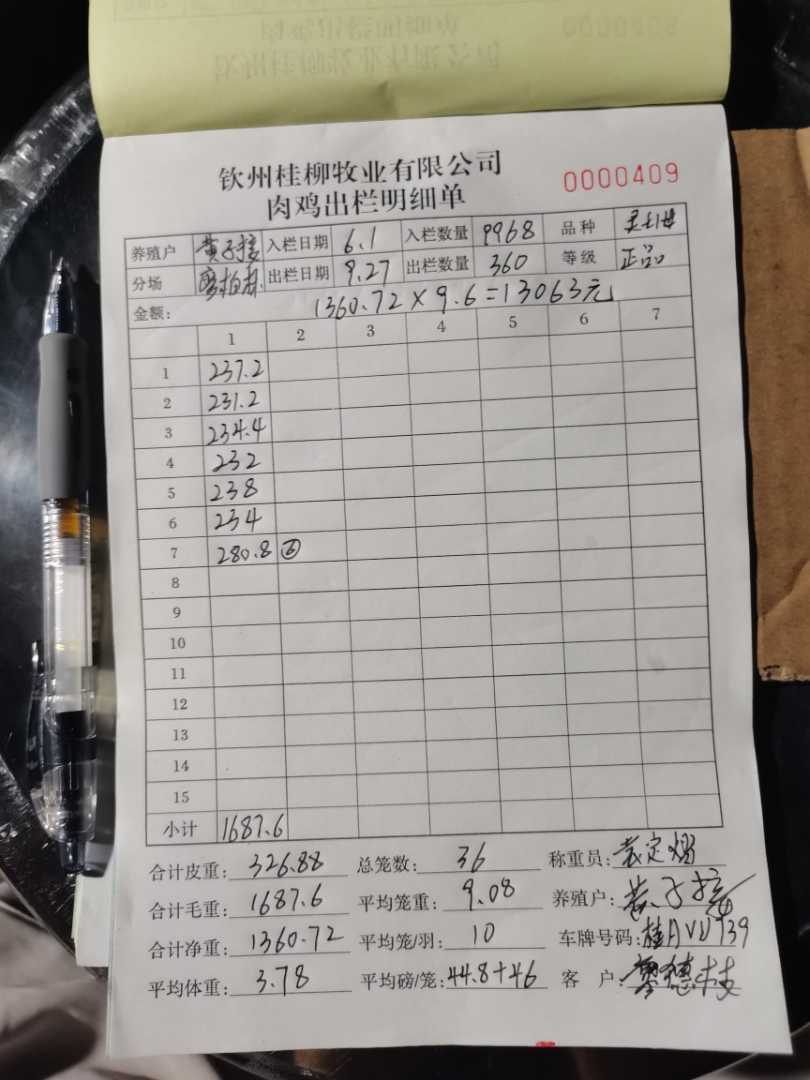 钦州桂柳牧业有限公司
肉鸡出栏明细单
0000409
养殖户 入栏日期 6.1 入栏数量 9968 品种
分场 出栏日期 9.27 出栏数量 360 等级 正品
金额: 1360.72×9.6=13063元
1 2 3 4 5 6 7
1 237.2
2 231.2
3 234.4
4 232
5 238
6 234
7 280.8 ⑥
8
9
10
11
12
13
14
15
小计 1687.6
合计皮重: 326.88 总笼数: 36 称重员: 袁定
合计毛重: 1687.6 平均笼重: 9.08 养殖户: 黄子
合计净重: 1360.72 平均笼/羽: 10 车牌号码: 739
平均体重: 3.78 平均磅/笼: 44.8+46 客户: 廖德